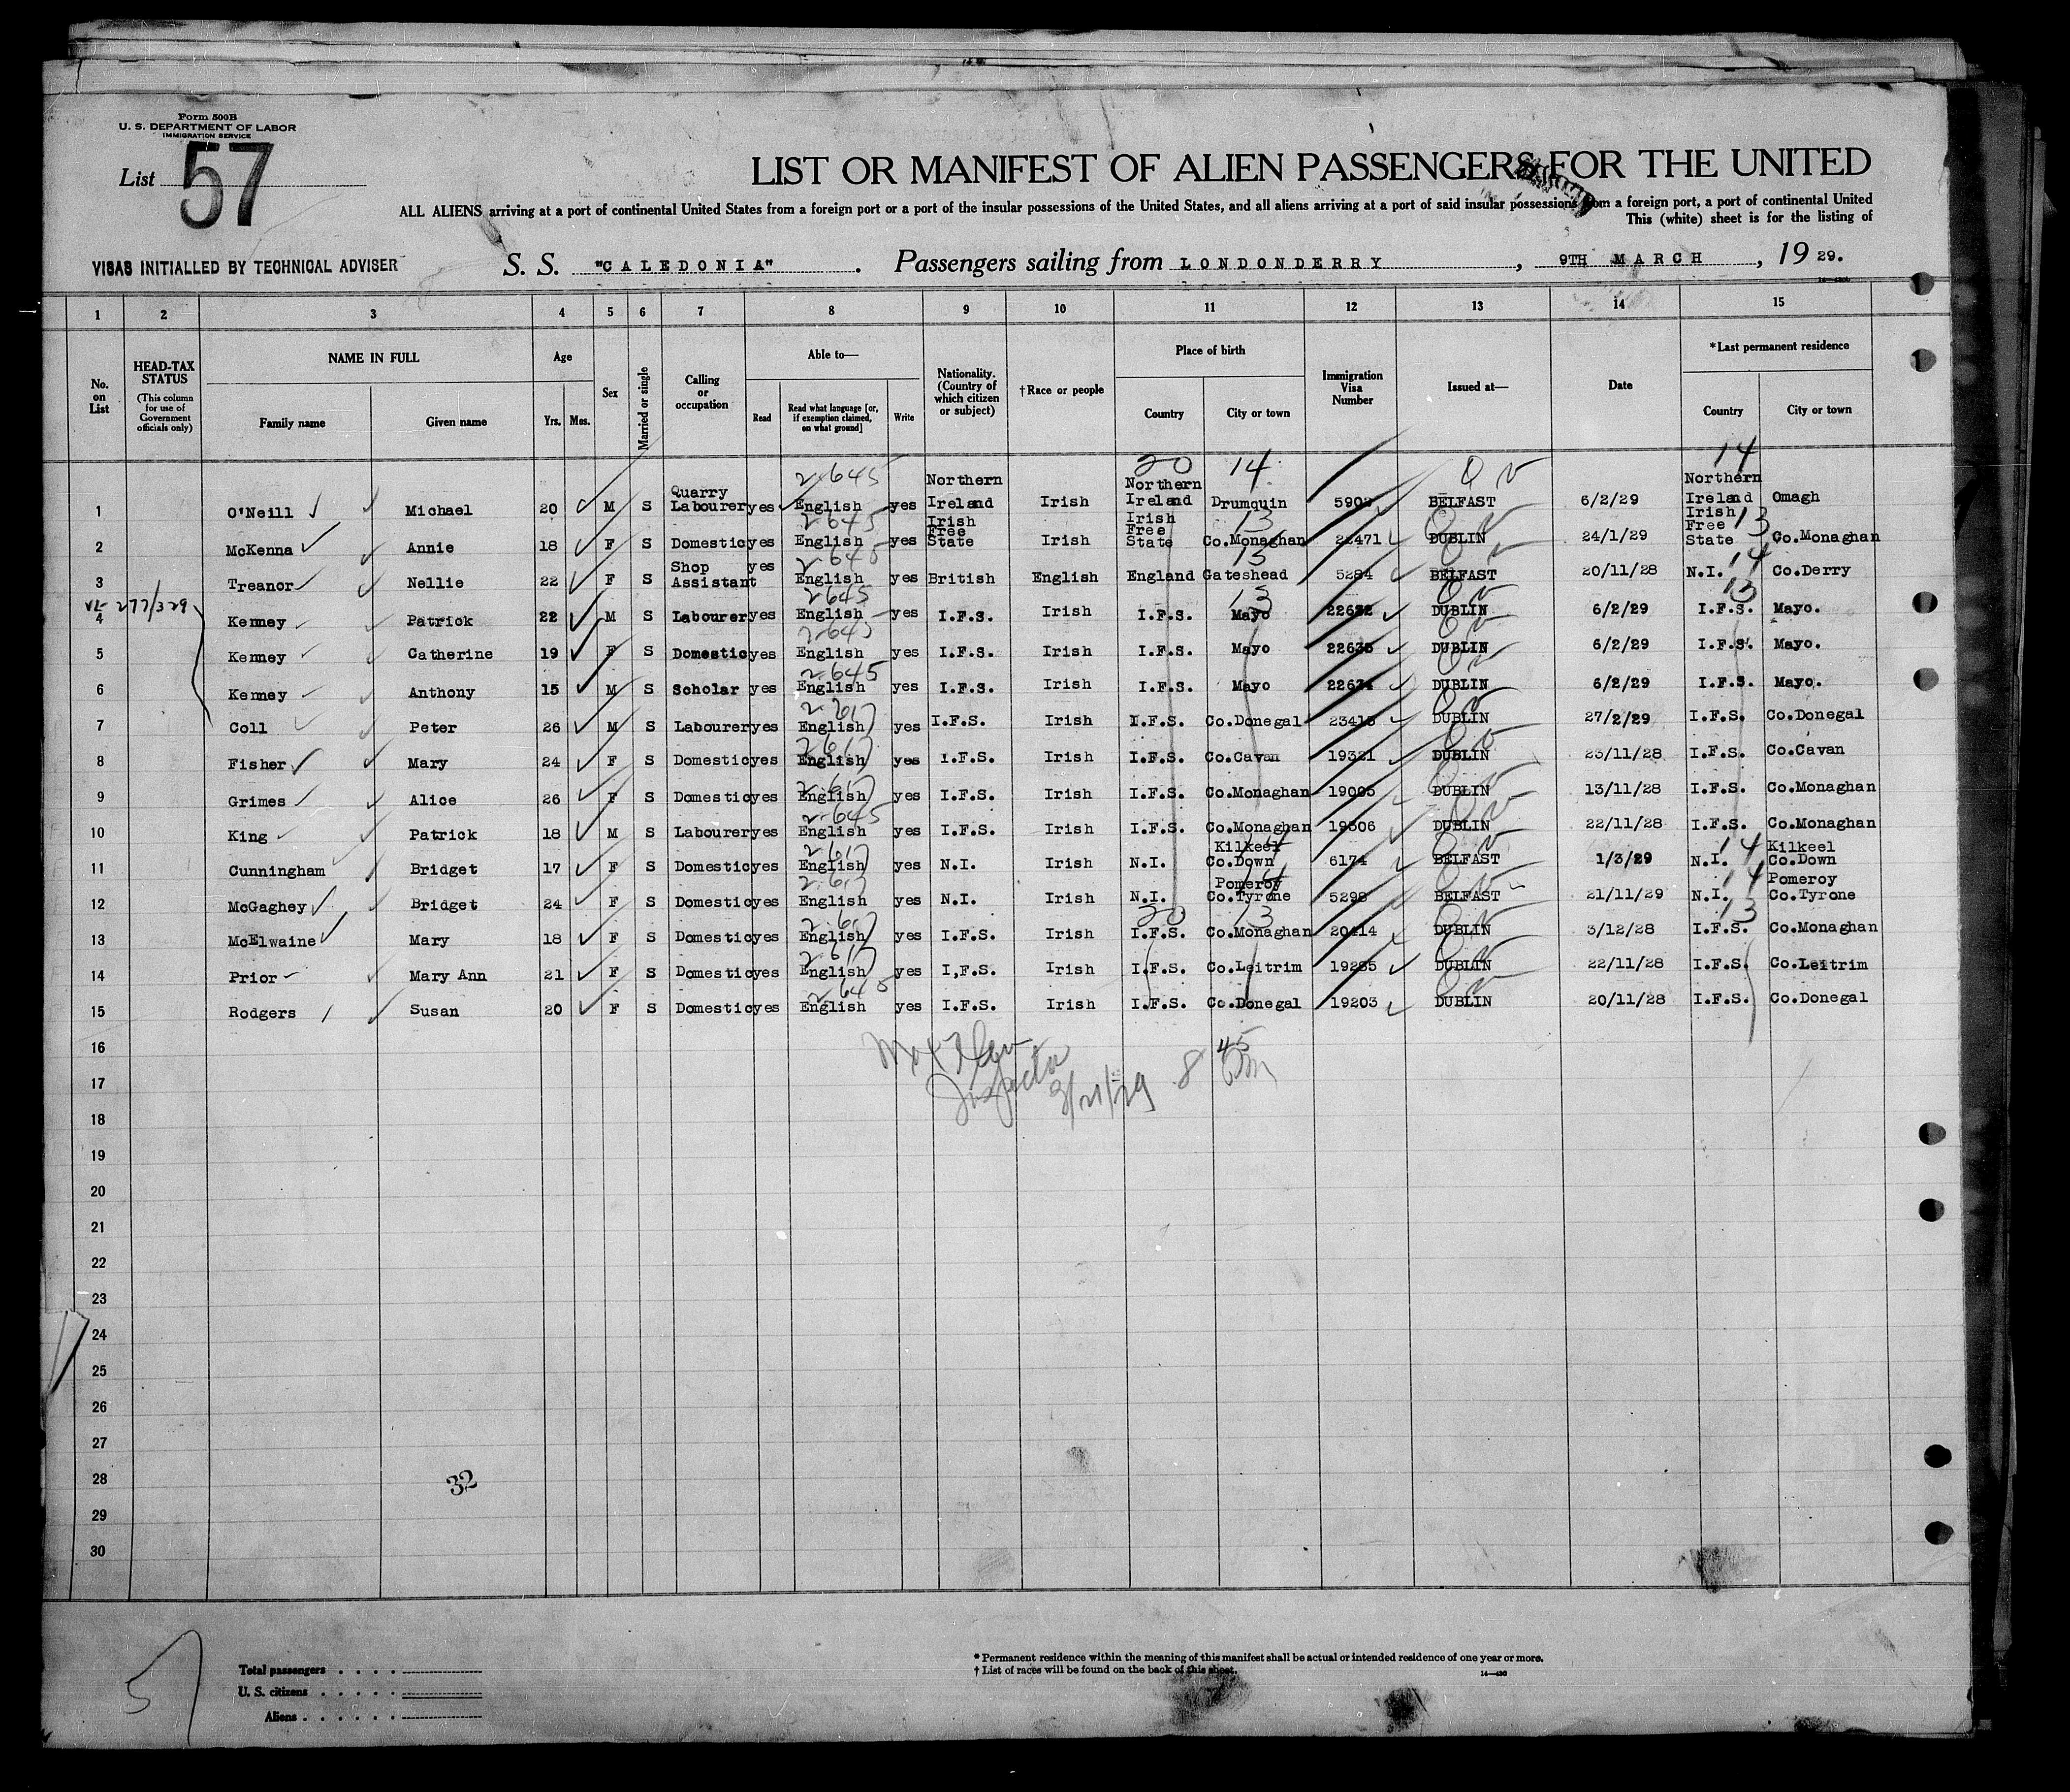 Form 500B
U. S. DEPARTMENT OF LABOR
IMMIGRATION SERVICE
List 57
LIST OR MANIFEST OF ALIEN PASSENGERS FOR THE UNITED
ALL ALIENS arriving at a port of continental United States from a foreign port or a port of the insular possessions of the United States, and all aliens arriving at a port of said insular possessions from a foreign port, a port of continental United
This (white) sheet is for the listing of
VISAS INITIALLED BY TECHNICAL ADVISER
S. S. "CALEDONIA". Passengers sailing from LONDONDERRY, 9TH MARCH, 19 29.
1 2 3 4 5 6 7 8 9 10 11 12 13 14 15
No. on List
HEAD-TAX STATUS (This column for use of Government officials only)
NAME IN FULL Family name Given name
Age Yrs. Mos.
Sex
Married or single
Calling or occupation
Able to— Read Read what language [or, if exemption claimed, on what ground] Write
Nationality. (Country of which citizen or subject)
†Race or people
Place of birth Country City or town
Immigration Visa Number
Issued at—
Date
*Last permanent residence Country City or town
20 14 14
1 O'Neill Michael 20 M S Quarry Labourer yes 2-645 English yes Northern Ireland Irish Northern Ireland Drumquin BELFAST 6/2/29 Northern Ireland Omagh
2 McKenna Annie 18 F S Domestic yes 2645 English yes Irish Free State Irish Irish Free State 13 Co.Monaghan DUBLIN 24/1/29 Irish Free State 13 Co.Monaghan
3 Treanor Nellie 22 F S Shop Assistant yes 2-645 English yes British English England 13 Gateshead 5284 BELFAST 20/11/28 N.I. 14 Co.Derry
VL- 277/329
4 Kenney Patrick 22 M S Labourer yes 2645 English yes I.F.S. Irish I.F.S. 13 Mayo 22632 DUBLIN 6/2/29 I.F.S. 13 Mayo.
5 Kenney Catherine 19 F S Domestic yes 2-645 English yes I.F.S. Irish I.F.S. Mayo 22633 DUBLIN 6/2/29 I.F.S. Mayo.
6 Kenney Anthony 15 M S Scholar yes 2-645 English yes I.F.S. Irish I.F.S. Mayo 22634 DUBLIN 6/2/29 I.F.S. Mayo.
7 Coll Peter 26 M S Labourer yes 2-617 English yes I.F.S. Irish I.F.S. Co.Donegal DUBLIN 27/2/29 I.F.S. Co.Donegal
8 Fisher Mary 24 F S Domestic yes 2617 English yes I.F.S. Irish I.F.S. Co.Cavan 19321 DUBLIN 23/11/28 I.F.S. Co.Cavan
9 Grimes Alice 26 F S Domestic yes 2-617 English yes I.F.S. Irish I.F.S. Co.Monaghan DUBLIN 13/11/28 I.F.S. Co.Monaghan
10 King Patrick 18 M S Labourer yes 2-645 English yes I.F.S. Irish I.F.S. Co.Monaghan DUBLIN 22/11/28 I.F.S. Co.Monaghan
11 Cunningham Bridget 17 F S Domestic yes 2617 English yes N.I. Irish N.I. Kilkeel Co.Down 14 6174 BELFAST 1/3/29 N.I. 14 Kilkeel Co.Down
12 McGaghey Bridget 24 F S Domestic yes 2-617 English yes N.I. Irish N.I. Pomeroy Co.Tyrone 14 5298 BELFAST 21/11/29 N.I. 14 Pomeroy Co.Tyrone
13 McElwaine Mary 18 F S Domestic yes 2-617 English yes I.F.S. Irish 20 I.F.S. 13 Co.Monaghan 20414 DUBLIN 3/12/28 I.F.S. 13 Co.Monaghan
14 Prior Mary Ann 21 F S Domestic yes 2-617 English yes I,F.S. Irish I.F.S. Co.Leitrim 19285 DUBLIN 22/11/28 I.F.S. Co.Leitrim
15 Rodgers Susan 20 F S Domestic yes 2-645 English yes I.F.S. Irish I.F.S. Co.Donegal 19203 DUBLIN 20/11/28 I.F.S. Co.Donegal
16
Inspector 8 45
17
18
19
20
21
22
23
24
25
26
27
28 32
29
30
57
Total passengers
U. S. citizens
Aliens
* Permanent residence within the meaning of this manifest shall be actual or intended residence of one year or more.
† List of races will be found on the back of this sheet.